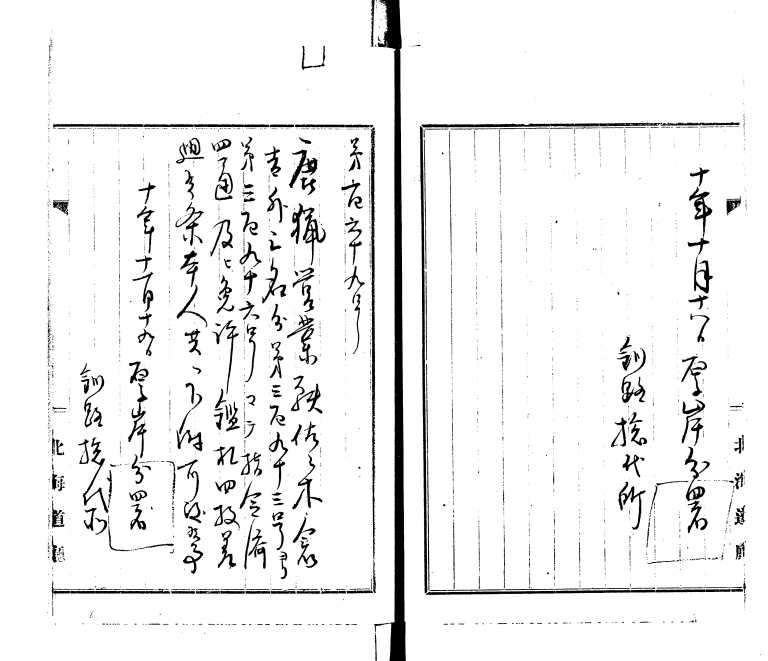 十年十月十八日厚岸分署
釧路捴代所
第百六十九号
鹿猟営業願佐々木
吉外三名分第三百九十三号ヨリ
第三百九十六号マテ指令済
四通及ヒ免許鑑札四枚差
廻シ候条本人共ヘ下附可
十年十一月十九日厚岸分署
釧路捴代所
北海道
北海道